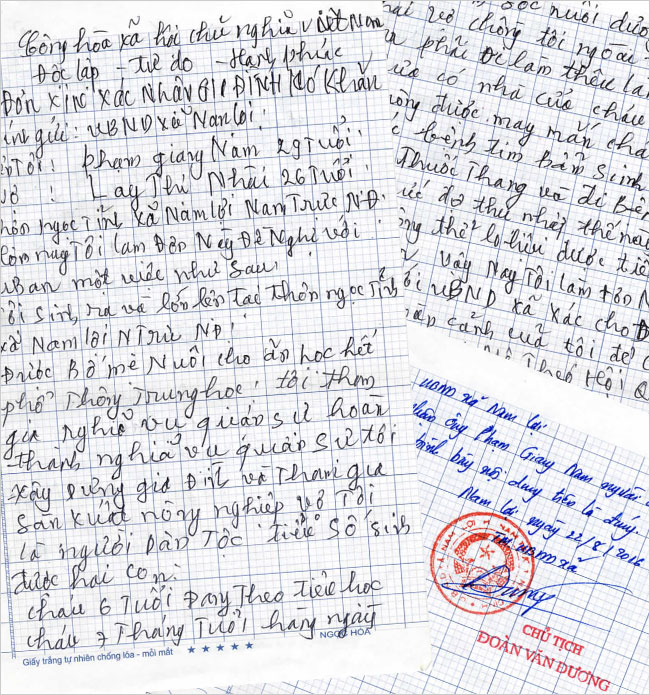 Cộng hòa xã hội chủ nghĩa việt Nam
Độc lập - tự do - Hạnh phúc
Đơn xin xác nhận gia Đình khó khăn
ính gửi: UBND xã Nam lợi.
ên Tôi: phạm giang Nam 29 Tuổi.
vợ: Lay Thị Nhái 26 Tuổi.
hôn ngọc Tỉnh xã Nam lợi Nam Trực NĐ.
Hôm nay Tôi làm Đơn Này Đề Nghị với
uban một việc như sau:
ôi sinh ra và lớn lên tại thôn ngọc Tỉnh
xã Nam lợi N Trực NĐ.
Được Bố mẹ Nuôi cho ăn học hết
phổ Thông Trung học. tôi tham
gia nghĩa vụ quân sự hoàn
thành nghĩa vụ quân sự tôi
xây dựng gia Đình và Tham gia
sản xuất nông nghiệp vợ Tôi
là người Dân Tộc Tiểu số sinh
được hai con:
cháu 6 Tuổi Đang Theo Tiểu học
cháu 7 Tháng Tuổi hàng ngày
NGỌC HOA
Giấy trắng tự nhiên chống lóa - mỏi mắt ★ ★ ★ ★ ★
sóc nuôi dưỡ
hai vợ chồng tôi ngoài
phải Đi làm thêu
có nhà cửa cháu
ông được may mắn chá
bệnh tim bẩm sinh
Thuốc Thang và đi Bện
đỡ thu nhập thế nào
ông thể lo liệu được tiề
vậy Nay Tôi làm đơn N
UBND xã Xác cho
àn cảnh của tôi để
Theo
UBND xã Nam lợi
nhận ông Phạm Giang Nam
trình bày nội dung trên là đúng.
Nam lợi ngày 22/8/2016
TM UBND xã
CHỦ TỊCH
ĐOÀN VĂN DƯƠNG